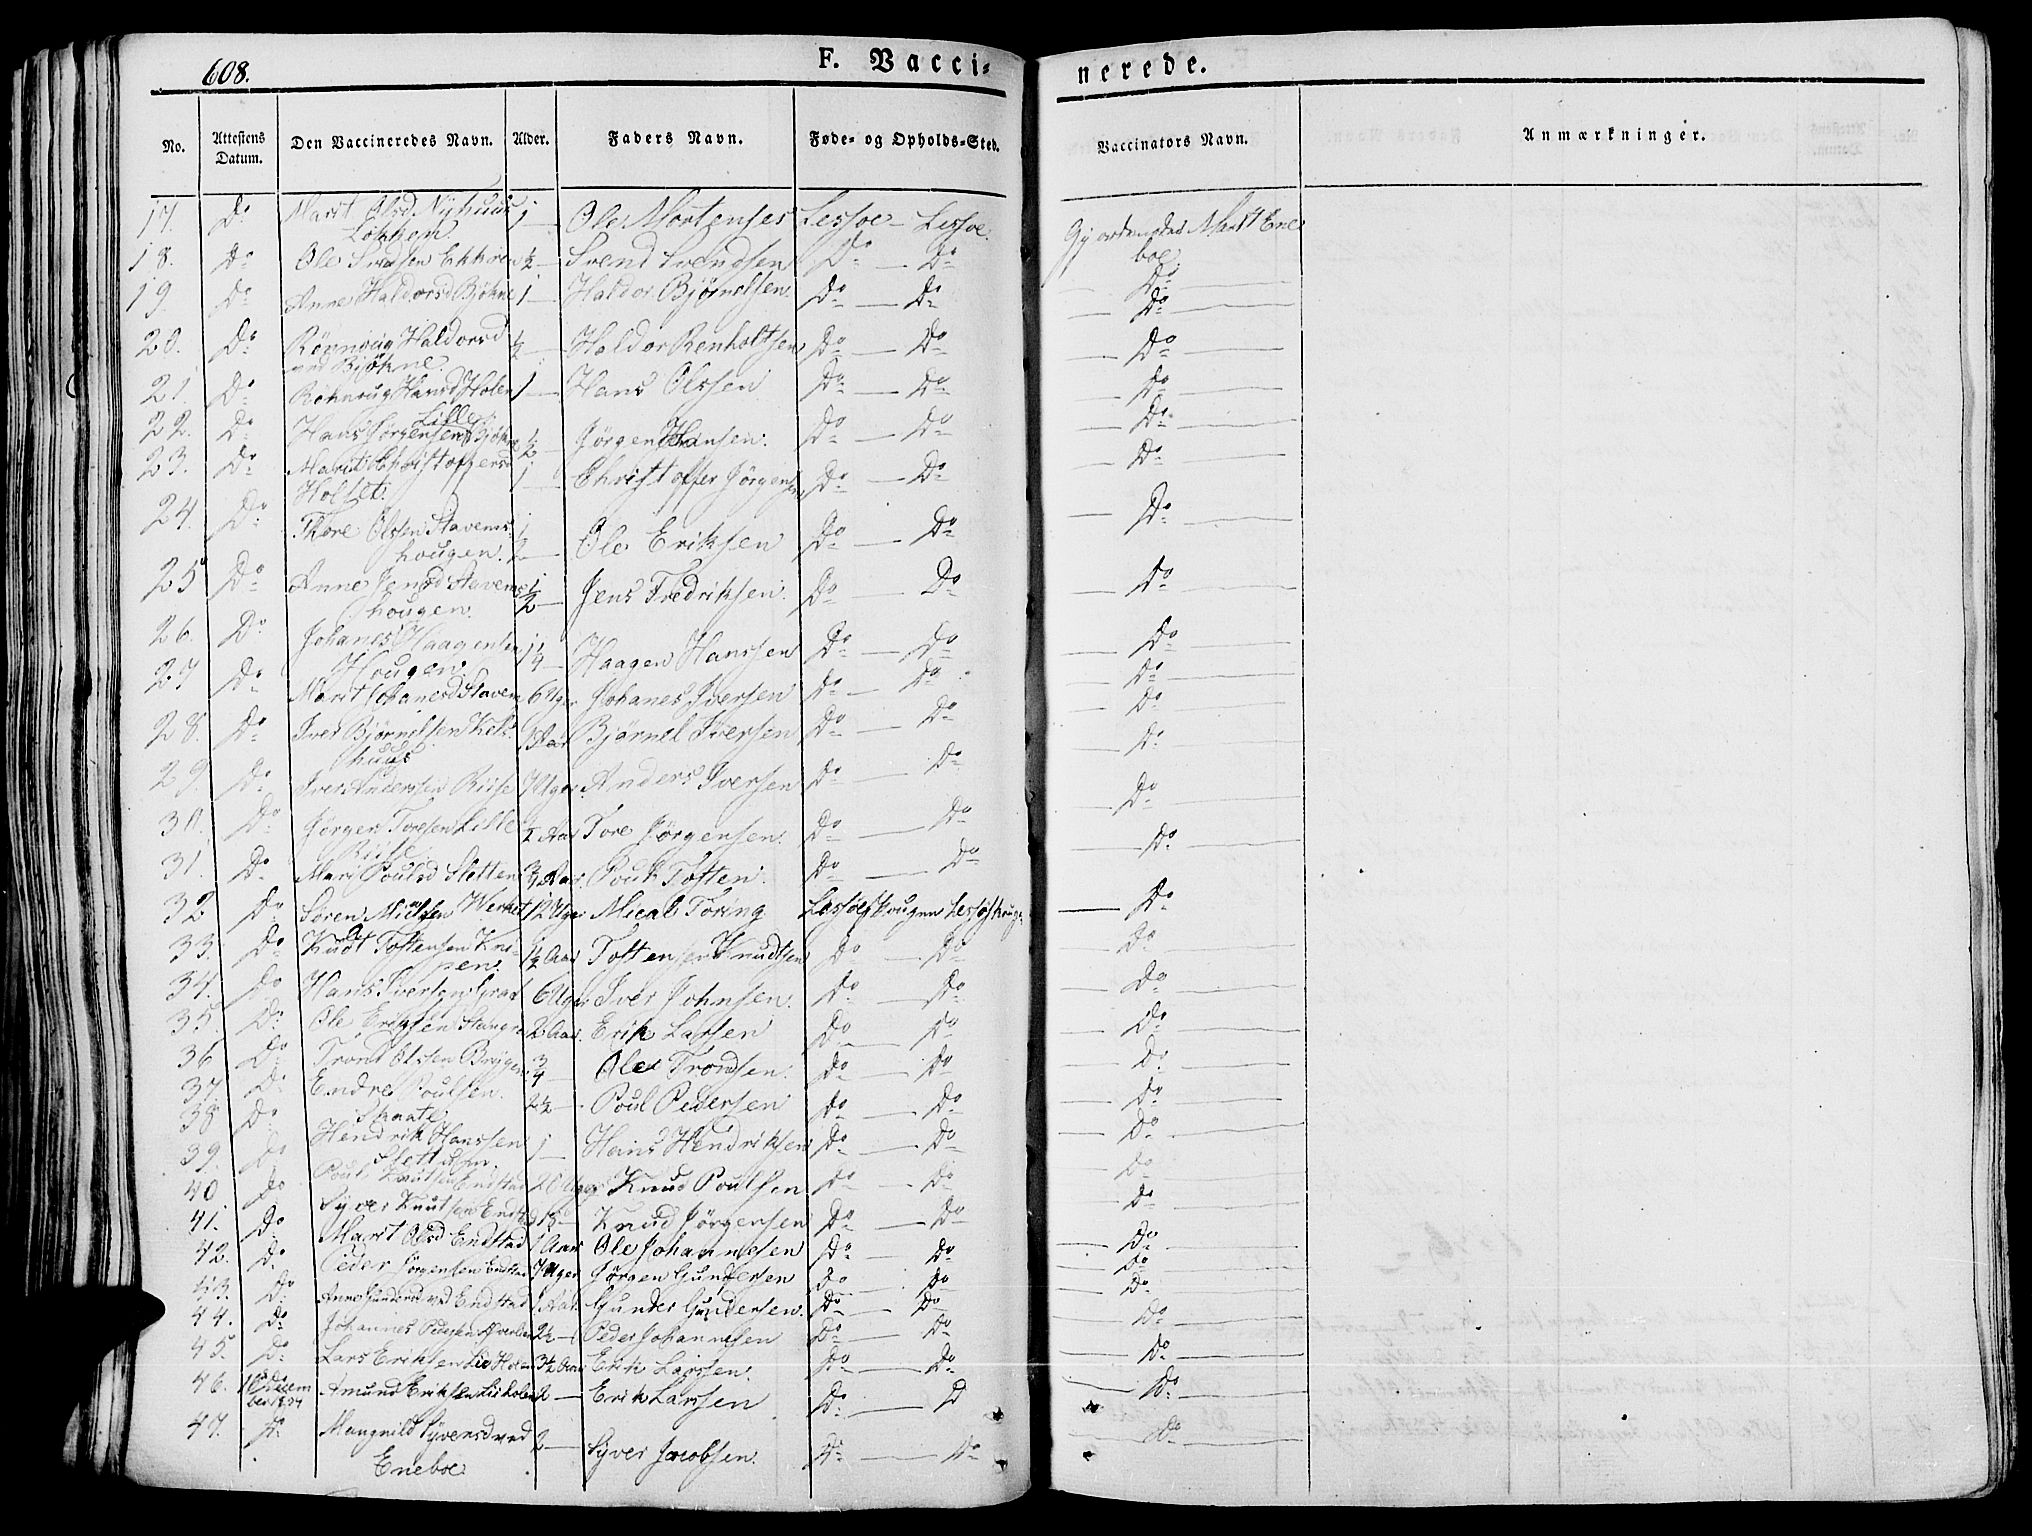 608.
F. Vacci-
nerede.
No. Attestens Datum. Den Vaccineredes Navn. Alder. Faders Navn. Føde- og Opholds-Sted. Vaccinators Navn. Anmærkninger.
17. Do Marit Olsd Nyhuus 1 Ole Mortensen Lessoe - Lessoe. Marit Ene
Løkken boe.
18. Do Ole 1/2 Svend Svendsen Do - Do Do
19. Do Anne Haldorsd Bjøkne 1 Haldor Bjørnelsen Do - Do Do
20. Do Haldorsd 1/2 Haldor Renholtsen Do - Do Do
ved Bjøkne.
21. Do Hansd Holen 1 Hans Olssen Do - Do Do
Lille
22. Do Hans Jørgensen Bjøkne 1/2 Jørgen Hansen. Do - Do Do
23. Do Marit Christoffersd 1 Christoffer Jørgensen Do - Do Do
Holset.
24. Do Thore Olssen Stavems 1/2 Ole Eriksen Do - Do Do
hougen.
25 Do Anne Jensd Stavems 1/2 Jens Fredriksen. Do - Do Do
hougen.
26. Do Johanes Haagensen 1/4 Haagen Hanssen Do - Do Do
Hougen
27 Do Marit Johanesd Stavem 6 Uger Johanes Iversen Do - Do Do
28. Do Iver Bjørnelsen Kels Aar Bjørnel Iversen Do - Do Do
huus
29. Do Iver Anderssen Riise 7 Uger Anders Iversen Do - Do Do
30. Do Jørgen Toresen Lille 1/2 Aar Tore Jørgensen. Do - Do Do
Riise
31. Do Mari Poulsd Sletten Aar Poul Toften. Do - Do Do
32 Do Søren Werket 12 Uger Mical Toring Lessøeskougen Lessøskouge Do
33. Do Knudt Toftensen Kni- 1 1/2 Aar Toftensen Knudtsen Do - Do Do
pen.
34. Do Hans Iversen 6 Uger Iver Johnsen. Do - Do Do
35. Do Ole Eriksen 2 Aar. Erik Larsen Do - Do Do
36 Do Trond Olssen 3/4 Ole Trondsen. Do - Do Do
37. Do Endre Poulsen. 2 1/2 Poul Pedersen Do - Do Do
Skaate
38 Do Hendrik Hanssen 1 Hans Hendriksen Do - Do Do
39. Do Poul Knutsen Endstad 20 Uger Knud Poulsen Do - Do Do
40 Do Syver Knutsen Knud Jørgensen Do - Do Do
41. Do Marit Olsd Endstad 1 Aar Ole Johannesen Do - Do Do
42. Do Peder Jørgensen Endstad 7 Uger Jørgen Gundersen Do - Do Do
43. Do Anne ved Endstad 1 Aar Gunder Gundersen. Do - Do Do
44. Do Johannes Pedersen 2 1/2 Peder Johannesen Do - Do Do
45. Do Lars Eriksen Lie Holen 3 1/2 Aar Erik Larssen. Do - Do Do
46. Decem Amund Eriksen Lieholen 2 Erik Larssen Do - D Do
47. Do Mangnild Syversd ved 2 Syver Jacobsen. Do - Do Do
Eneboe.